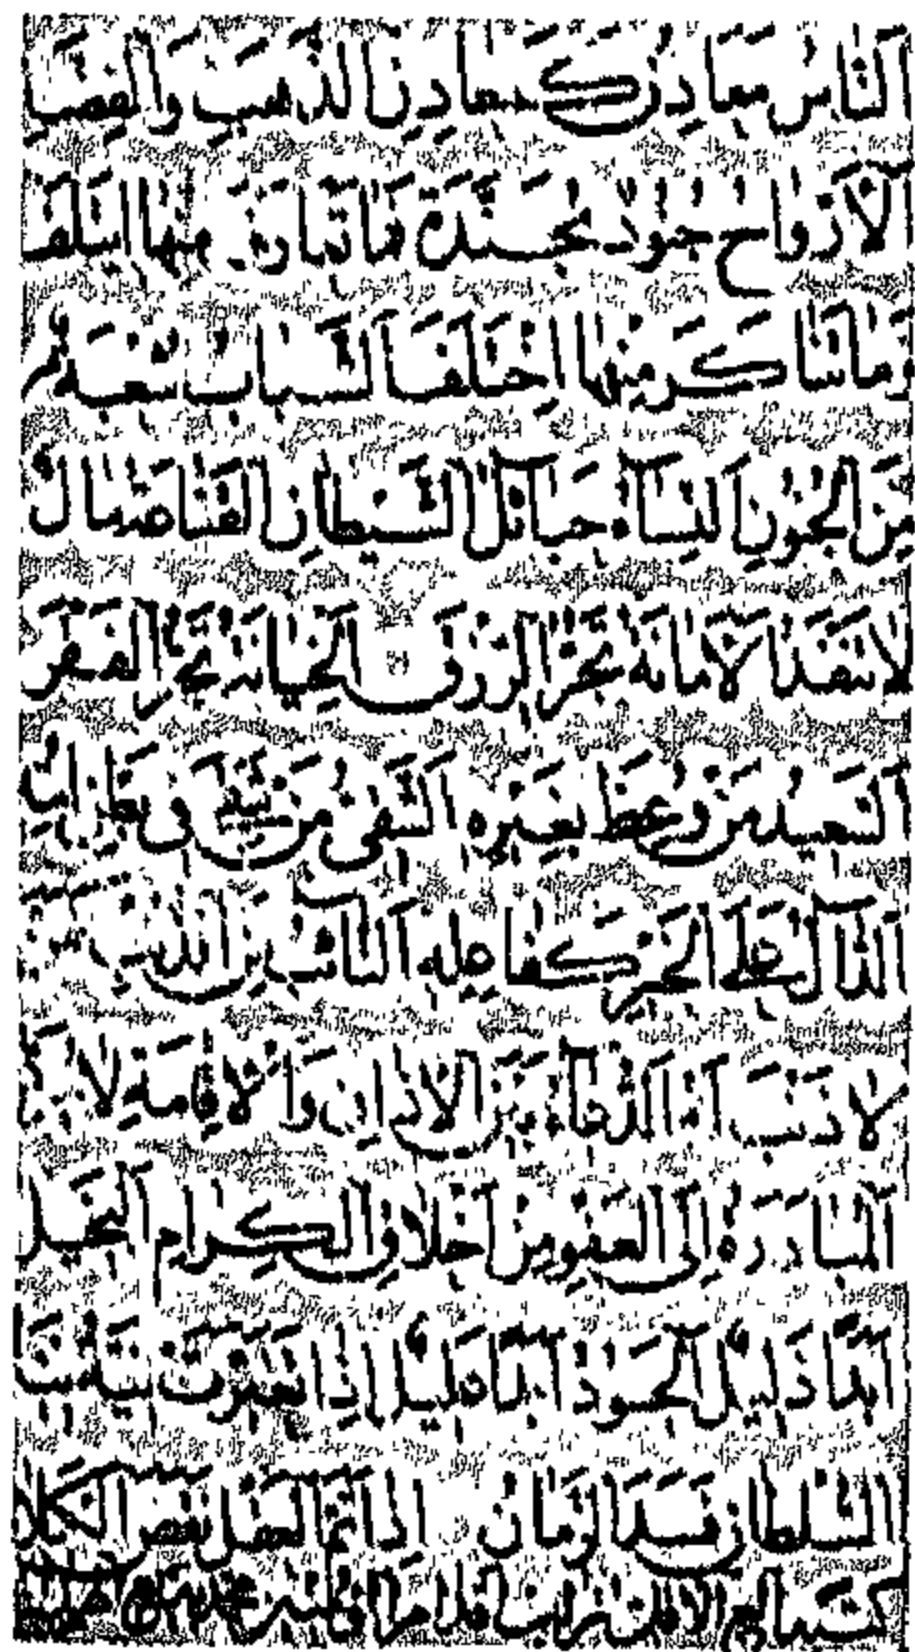 الناس معادن كمعادن الذهب والفضة
الأرواح جنود مجندة فما تعارف منها ايتلف
وما تناكر منها اختلف الشباب شعبة
من الجنون النساء حبائل الشيطان القناعة مال
لا ينفد الأمانة تجر الرزق الخيانة تجر الفقر
السعيد من وعظ بغيره الشقي من شقي في بطن امه
الدال على الخير كفاعله التائب من الذنب كمن
لا ذنب له الدعاء بين الأذان والإقامة لا يرد
المبادرة إلى العفو من أخلاق الكرام البخيل
ابدا ذليل الحسود ابدا عليل إذا تغيرت نية
السلطان فسد الزمان اذا تم العقل نقص الكلام
كتبه